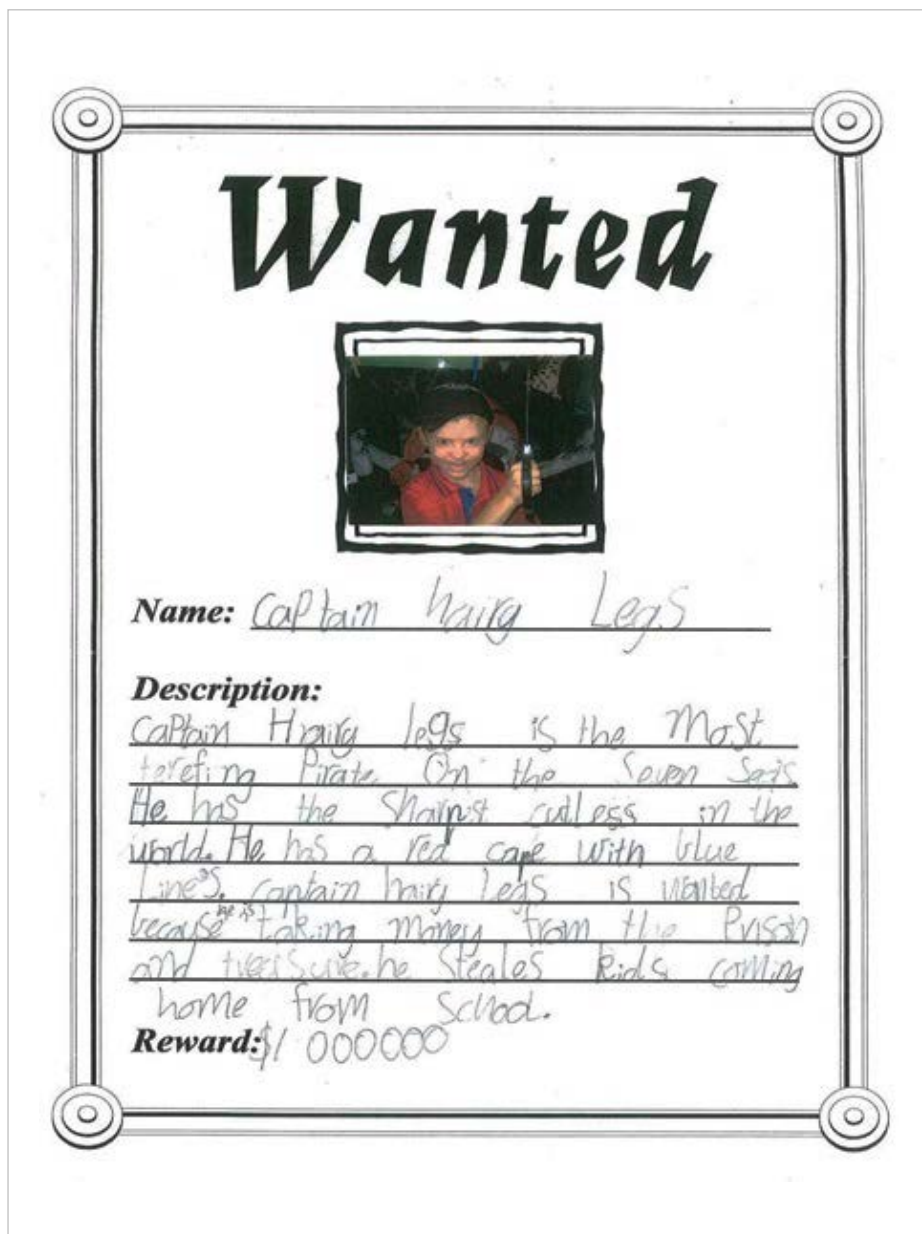 Wanted
Name: Captain hairy Legs
Description:
Captain Hairy legs is the Most
terefing Pirate On the Seven Seas.
He has the Sharpst cutless in the
world. He has a red cape with blue
Lines. captain hairy Legs is wanted
because he is taking money from the Prison
and treersure. he steales kids coming
home from school.
Reward: $1 000000